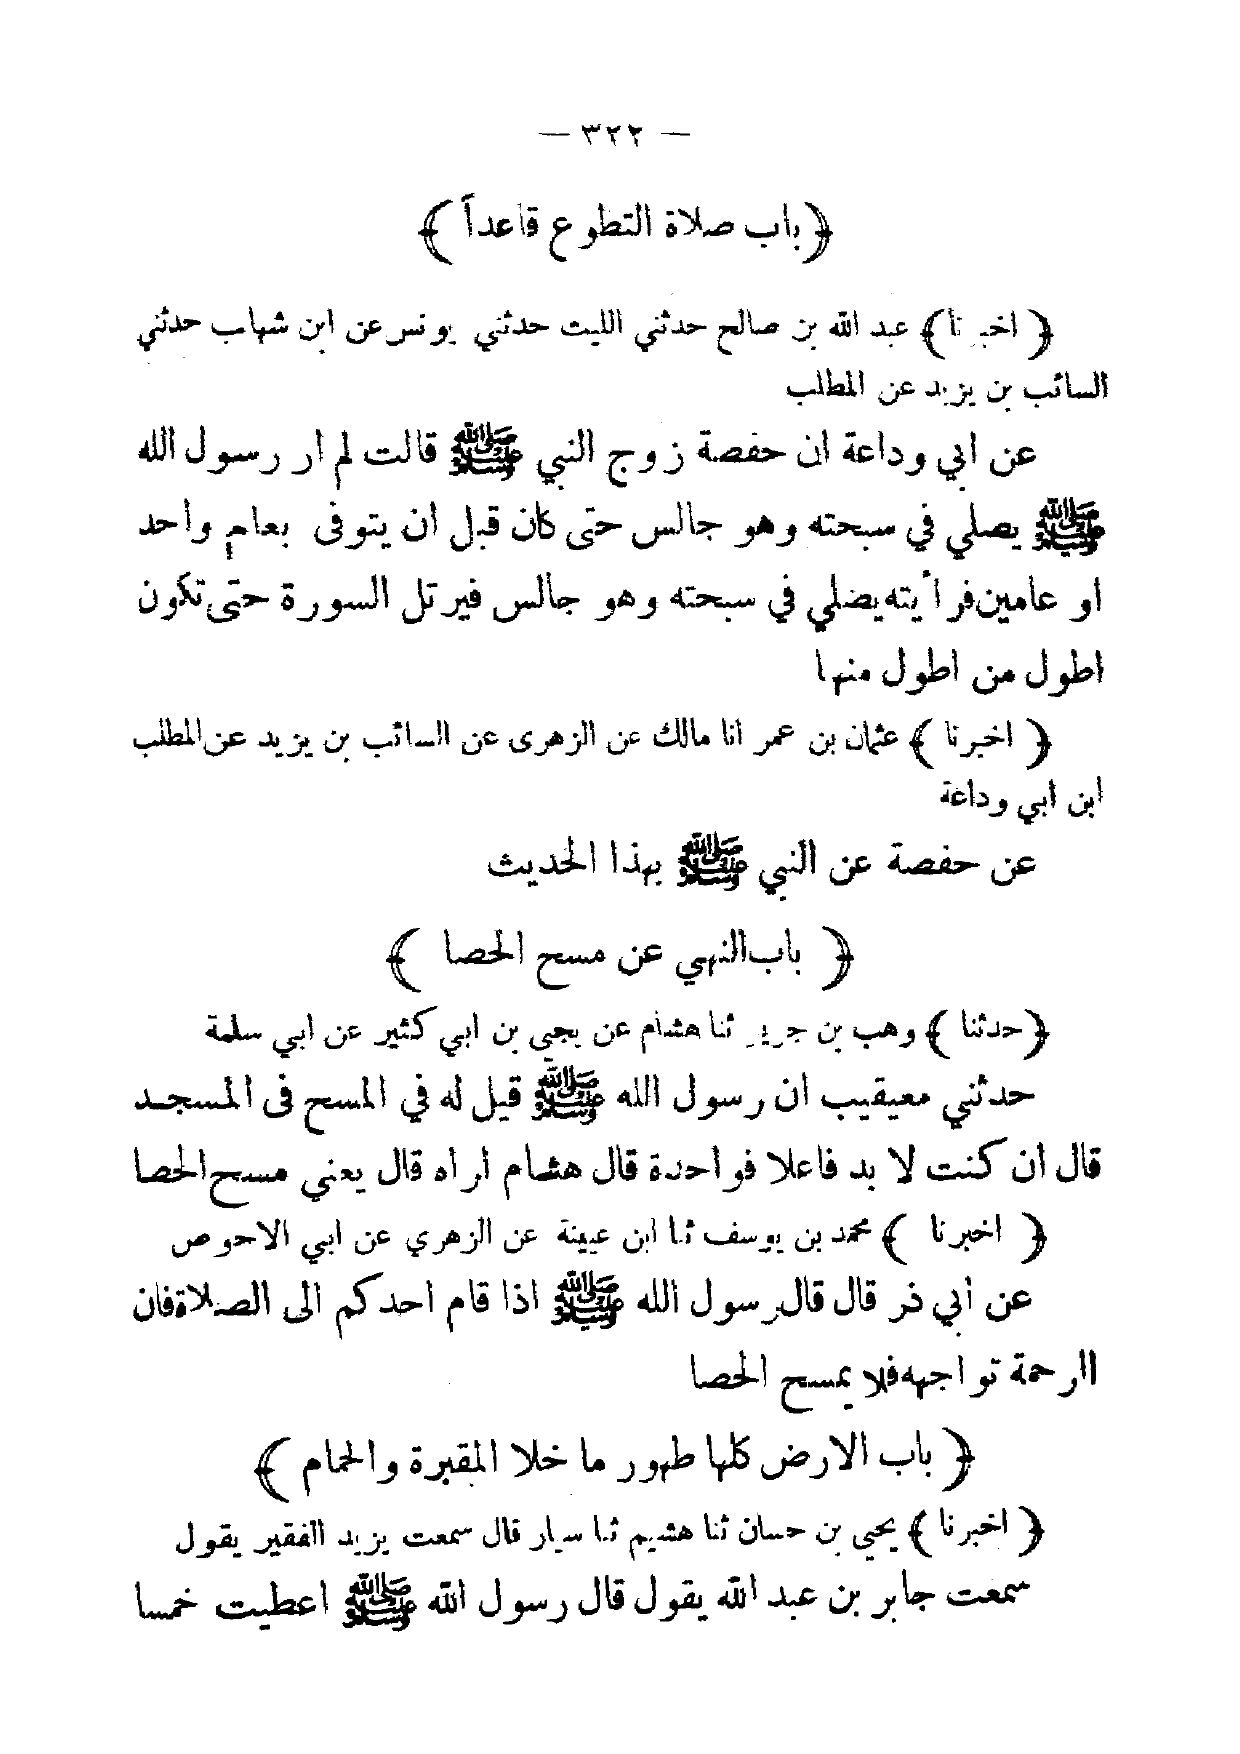 — ٣٢٢ —
﴿ باب صلاة التطوع قاعداً ﴾
﴿ اخبرنا ﴾ عبد الله بن صالح حدثني الليث حدثني يونس عن ابن شهاب حدثني
السائب بن يزيد عن المطلب
عن ابي وداعة ان حفصة زوج النبي ﷺ قالت لم ار رسول الله
ﷺ يصلي في سبحته وهو جالس حتى كان قبل ان يتوفى بعام واحد
او عامين فرأيته يضلي في سبحته وهو جالس فيرتل السورة حتى تكون
اطول من اطول منها
﴿ اخبرنا ﴾ عثمان بن عمر انا مالك عن الزهرى عن السائب بن يزيد عن المطلب
ابن ابي وداعة
عن حفصة عن النبي ﷺ بهذا الحديث
﴿ باب النهي عن مسح الحصا ﴾
﴿ حدثنا ﴾ وهب بن جرير ثنا هشام عن يحيى بن ابي كثير عن ابي سلمة
حدثني معيقيب ان رسول الله ﷺ قيل له في المسح فى المسجد
قال ان كنت لا بد فاعلا فواحدة قال هشام أراه قال يعني مسح الحصا
﴿ اخبرنا ﴾ محمد بن يوسف ثنا ابن عيينة عن الزهري عن ابي الاحوص
عن أبي ذر قال قال رسول الله ﷺ اذا قام احدكم الى الصلاة فان
الرحمة تواجهه فلا يمسح الحصا
﴿ باب الارض كلها طهور ما خلا المقبرة والحمام ﴾
﴿ اخبرنا ﴾ يحيى بن حسان ثنا هشيم ثنا سيار قال سمعت يزيد الفقير يقول
سمعت جابر بن عبد الله يقول قال رسول الله ﷺ اعطيت خمسا